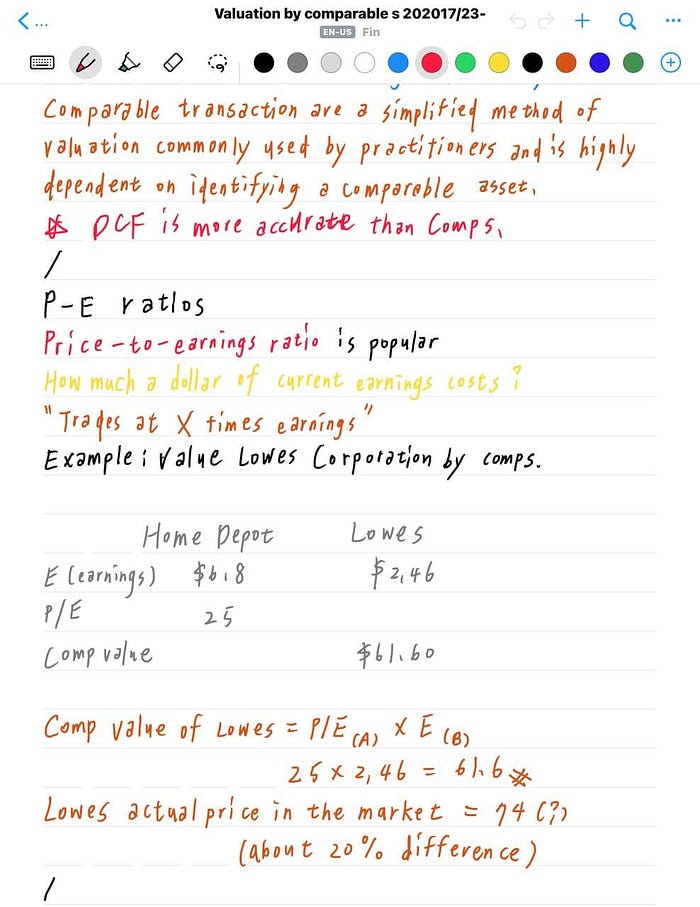 Valuation by comparable s 202017/23-
EN-US Fin
Comparable transaction are a simplified method of
valuation commonly used by practitioners and is highly
dependent on identifying a comparable asset.
DCF is more accurate than Comps.
/
P-E ratios
Price-to-earnings ratio is popular
How much a dollar of current earnings costs?
"Trades at X times earnings"
Example: Value Lowes Corporation by comps.
Home Depot Lowes
E (earnings) $6.8 $2.46
P/E 25
Comp value $61.60
Comp value of Lowes = P/E (A) X E (B)
25 x 2.46 = 61.6
Lowes actual price in the market = 74 (?)
(about 20% difference)
/